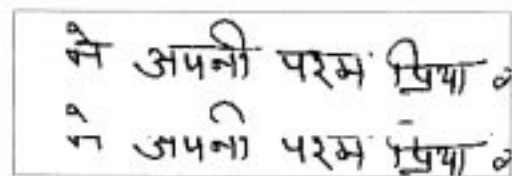 ने अपनी परम प्रिया
ने अपनी परम प्रिया